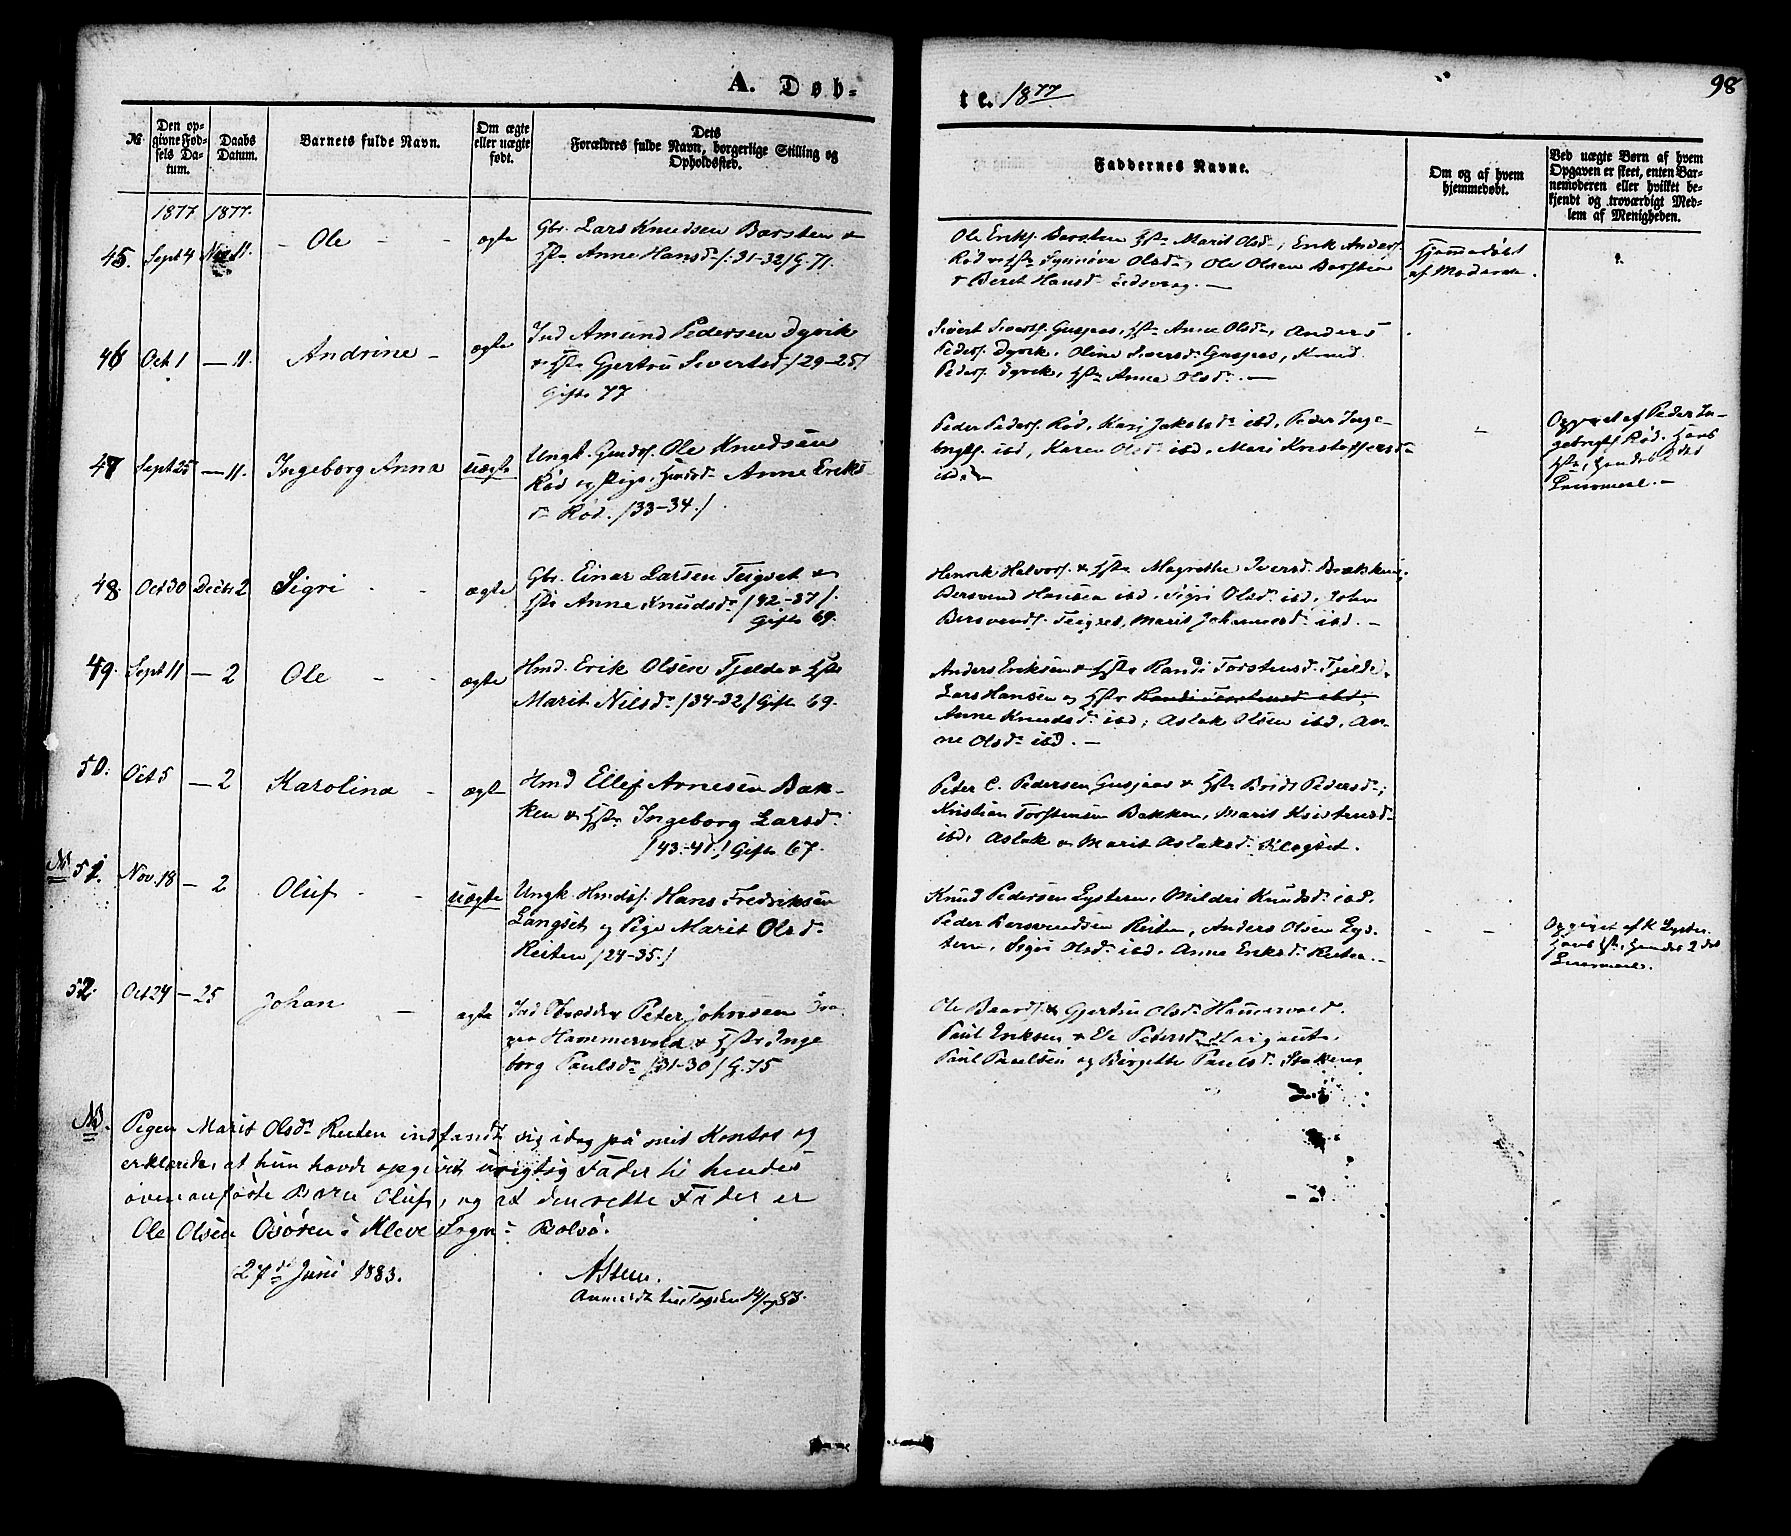 A. Døb-
te. 1877
98
№
Den op-
givne Fød-
sels Da-
tum.
Daabs
Datum.
Barnets fulde Navn.
Om ægte
eller uægte
født.
Dets
Forældres fulde Navn, borgerlige Stilling og
Opholdssted.
Faddernes Navne.
Om og af hvem
hjemmedøbt.
Ved uægte Børn af hvem
Opgaven er skeet, enten Bar-
nemoderen eller hvilket be-
kjendt og troværdigt Med-
lem af Menigheden.
1877 1877.
45. Sept 4 Nov 11. - Ole - - ægte
Gbr. Lars Knudsen Børsten &
Hstr Anne Hansdr /: 31-32/ G. 71.
Ole Eriks. Børsten Hstr Marit Olsdr, Erik Anders.
Rød & Hstr Synnøve Olsdr, Ole Olsen Børsten
& Beret Hansdr Eidsvaag. —
Hjemmedøbt
af Moderen.
46 Oct. 1 — 11. Andrine - ægte
Ind Amund Pedersen Dyrvik
& Hstr Gjertru Sivertsd /29-25/
Gifte 77
Sivert Siverts. Gusjaas, Hstr Anne Olsdr, Anders
Peders. Dyrvik, Oline Siversdr Gusjaas, Knud
Peders. Dyrvik, Hstr Anne Olsdr. —
47 Sept 25 — 11. Ingeborg Anna uægte
Ungk. Gmds. Ole Knudsen
Rød og Pige, Hmdsdr Anne Eriks-
dr Rød. /33-34./
Peder Peders. Rød, Kari Jakobsdr ibd, Peder Inge-
brigts. ibd, Karen Olsdr ibd, Mari Kristoffersdr
ibd. —
Opgivet af Peder In-
gebrigts Rød. Hans
1ste, Hendes 2det
Leiermaal. —
48. Oct 30 Decbr 2 Sigri - - ægte
Gbr. Einar Larsen Teigset &
Hstr Anne Knudsdr /42-37/.
Gifte 69.
Henrik Halvors. & Hstr Magrethe Iversdr
Bersvend Hansen ibd, Sigri Olsdr ibd, John
Bersvends. Teigset, Marit Johannesdr ibd. —
49. Sept 11 — 2 Ole - - ægte
Hmd. Erik Olsen Tjelde & Hstr
Marit Nilsdr /34-32/ Gifte 69.
Anders Eriksen & Hstr Randi Torstensdr Tjelde,
Lars Hansen og Hstr Randi Torstensd ibd,
Anne Knudsdr ibd, Aslak Olsen ibd, An-
ne Olsdr ibd. —
50. Oct 5 — 2 Karolina - ægte
Hmd Ellef Arnesen Bak-
ken & Hstr Ingeborg Larsdr
/43-41./ Gifte 67.
Peter C. Pedersen Gusjaas & Hstr Brit Pedersdr,
Kristian Torstensen Bakken, Marit Kristensdr
ibd, Aslak & Marit Aslaksdr
NB 51. Nov. 18 — 2 Oluf - - uægte
Ungk Hmds. Hans Fredriksen
Langset og Pige Marit Olsdr
Reiten /24-35./
Knud Pedersen Lysteren, Mildri Knudsdr ibd.
Peder Bersvendsen Reiten, Anders Olsen Lys-
teren, Sigri Olsdr ibd. Anne Eriksdr Reiten. —
Opgivet af K Lyster.
Hans 1ste, Hendes 2det
Leiermaal.
52. Oct 24 — 25 Johan - ægte
Ind Peter Johnsen
Hammervold & Hstr Inge
borg Paulsdr /31-30/ G. 75
Ole Baards. & Gjertru Olsdr Hammervold.
Paul Eriksen & Petersdr
Paul Paulsen og Birgitte Paulsdr
NB. Pigen Marit Olsdr Reiten indfandt sig idag på mit Kontor og
erklærede, at hun havde opgivet urigtig Fader til hendes
ovenanførte Barn Oluf, og at den rette Fader er
Ole Olsen Osøren i Kleve Sogn i Bolsø.
27de Juni 1883.